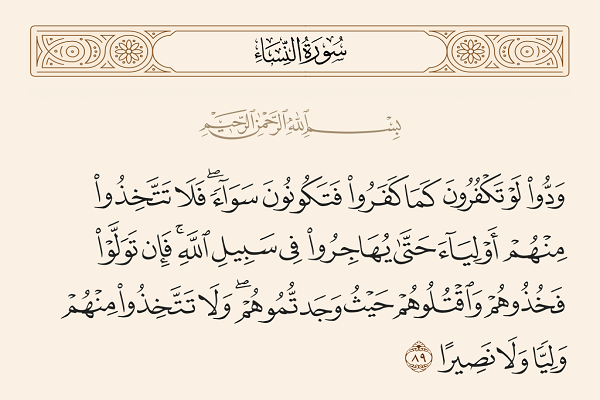 سُورَةُ النِّسَاءِ
بِسْمِ ٱللَّهِ ٱلرَّحْمَٰنِ ٱلرَّحِيمِ
وَدُّوا۟ لَوْ تَكْفُرُونَ كَمَا كَفَرُوا۟ فَتَكُونُونَ سَوَآءً ۖ فَلَا تَتَّخِذُوا۟
مِنْهُمْ أَوْلِيَآءَ حَتَّىٰ يُهَاجِرُوا۟ فِى سَبِيلِ ٱللَّهِ ۚ فَإِن تَوَلَّوْا۟
فَخُذُوهُمْ وَٱقْتُلُوهُمْ حَيْثُ وَجَدتُّمُوهُمْ ۖ وَلَا تَتَّخِذُوا۟ مِنْهُمْ
وَلِيًّا وَلَا نَصِيرًا ٨٩